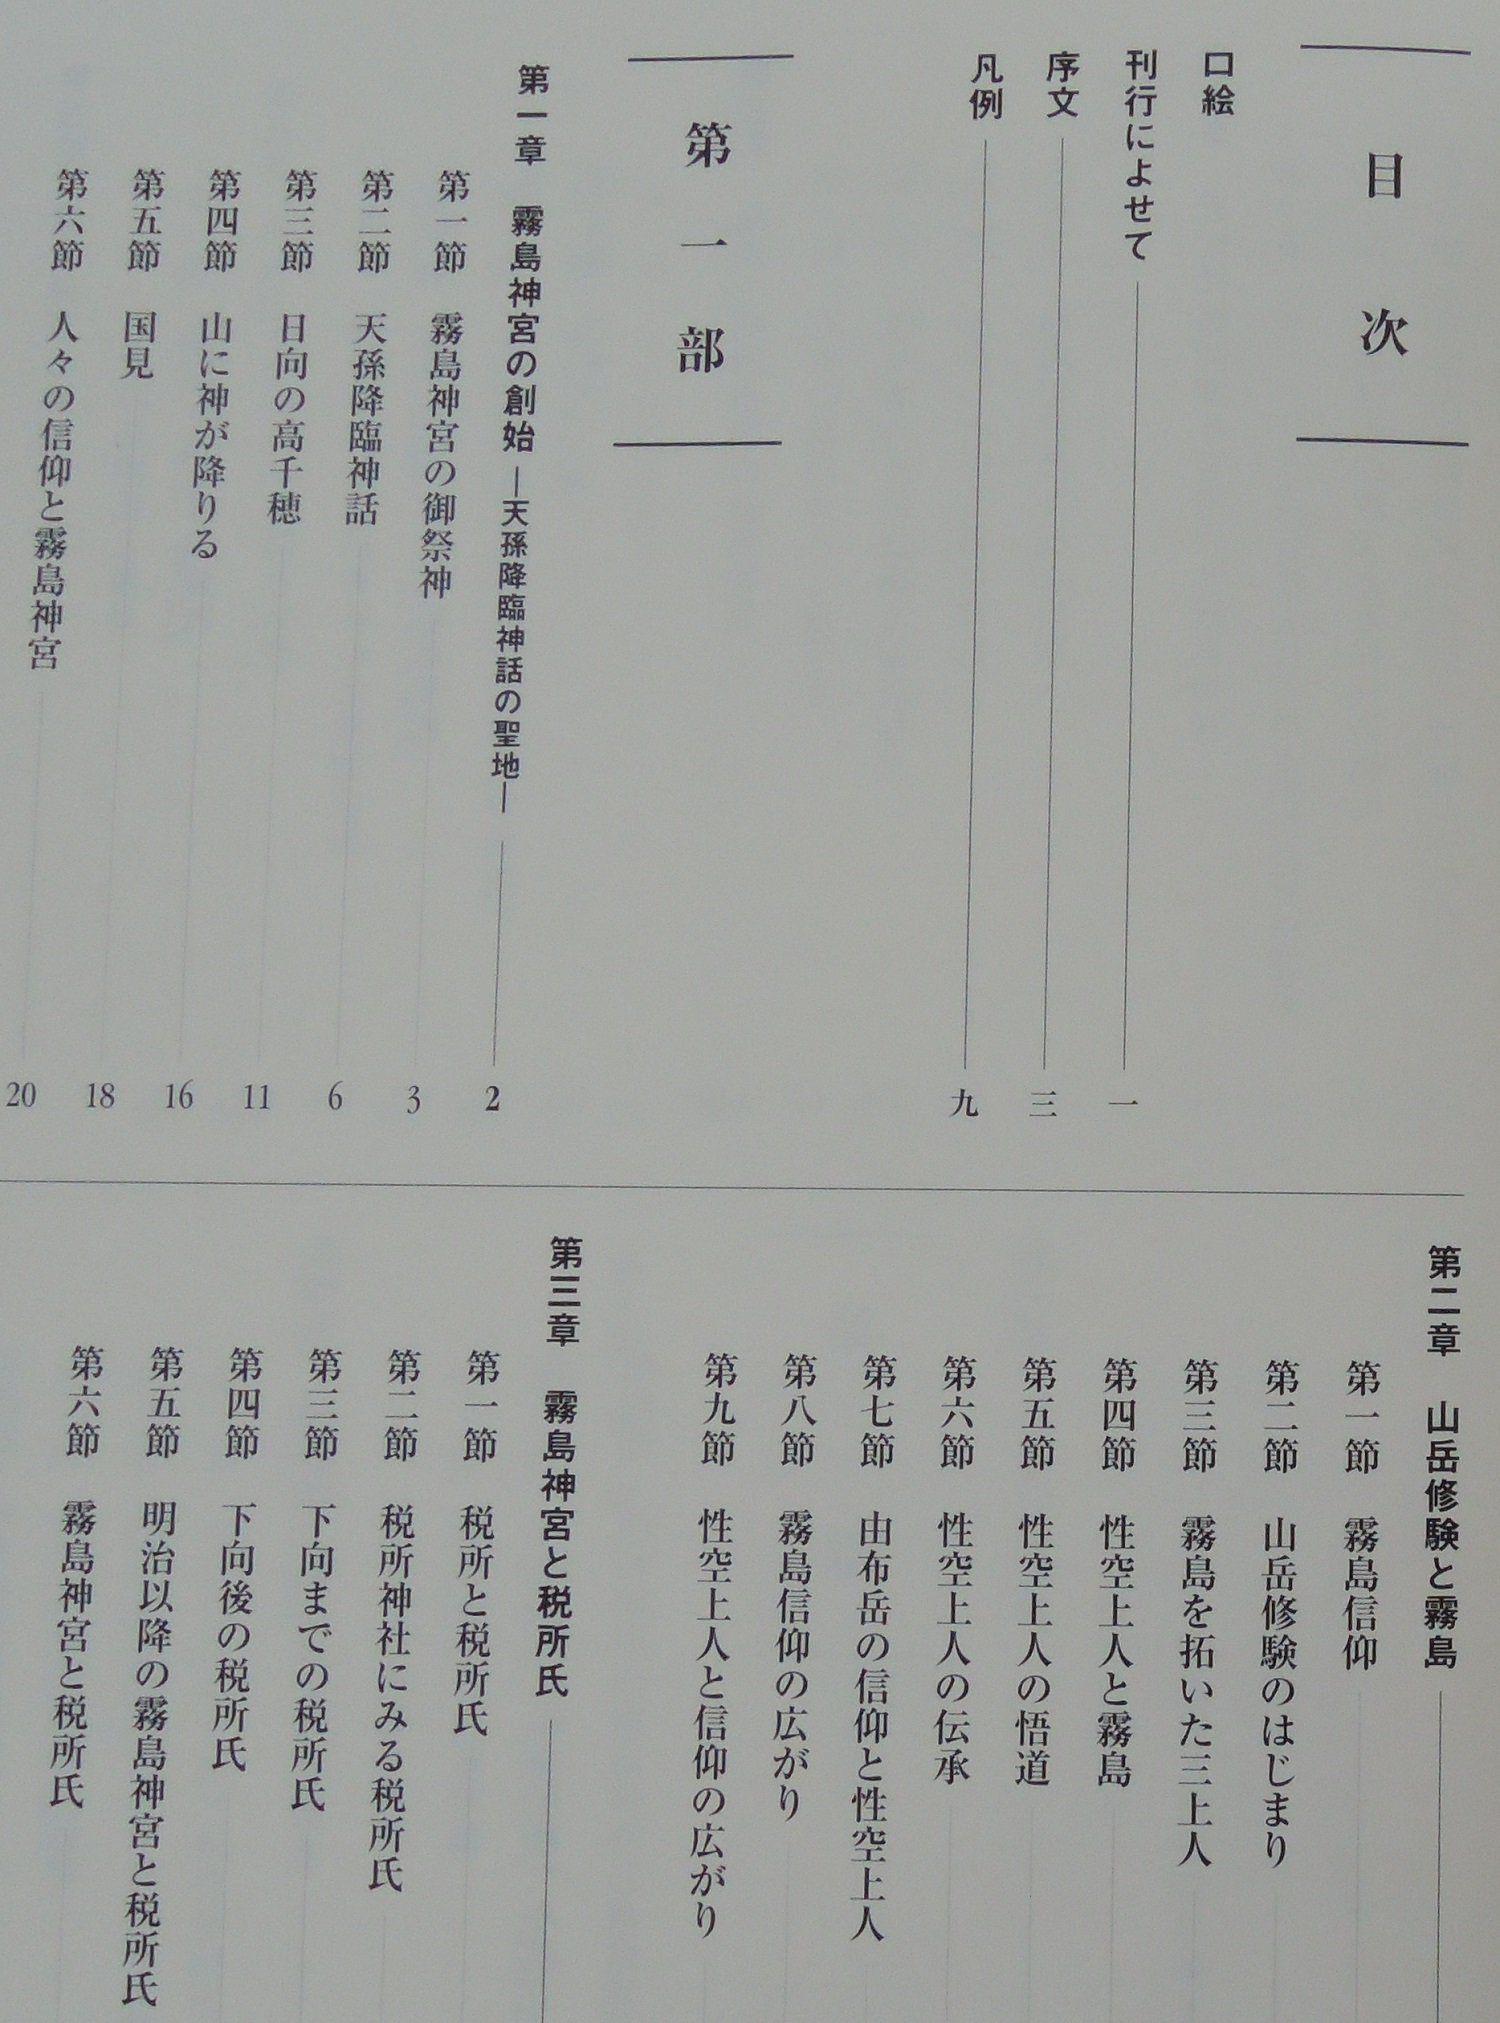 目次
口絵
刊行によせて 一
序文 三
凡例 九
第一部
第一章 霧島神宮の創始 ―天孫降臨神話の聖地― 2
第一節 霧島神宮の御祭神 3
第二節 天孫降臨神話 6
第三節 日向の高千穂 11
第四節 山に神が降りる 16
第五節 国見 18
第六節 人々の信仰と霧島神宮 20
第二章 山岳修験と霧島
第一節 霧島信仰
第二節 山岳修験のはじまり
第三節 霧島を拓いた三上人
第四節 性空上人と霧島
第五節 性空上人の悟道
第六節 性空上人の伝承
第七節 由布岳の信仰と性空上人
第八節 霧島信仰の広がり
第九節 性空上人と信仰の広がり
第三章 霧島神宮と税所氏
第一節 税所と税所氏
第二節 税所神社にみる税所氏
第三節 下向までの税所氏
第四節 下向後の税所氏
第五節 明治以降の霧島神宮と税所氏
第六節 霧島神宮と税所氏